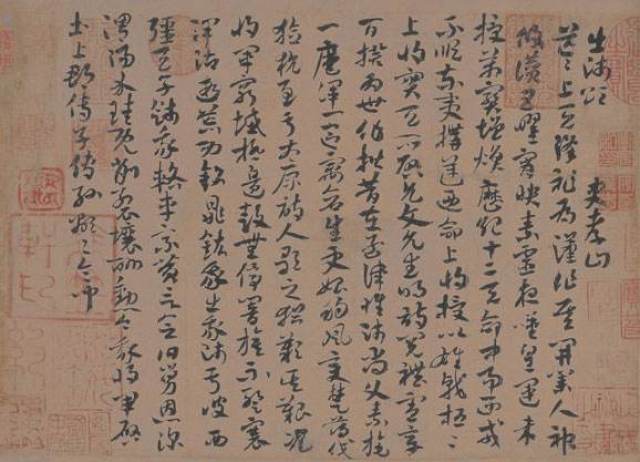 出師頌 史孝山
茫茫上天降祚為漢作基開業人神
攸讚五曜宵映素靈夜歎皇運來
授萬寶增煥歷紀十二天命中易西戎
不順東夷構逆乃命上將授以雄戟桓桓
上將實天所啓允文允武明詩閱禮憲章
百揆為世作楷昔在孟津惟師尚父素旄
一麾渾一區寓蒼生更始朔風變楚薄伐
獫狁至于太原詩人歌之猶歎其艱況
我將軍窮城極邊鼓無停響旗不蹔褰
澤霑遐荒功銘鼎鉉我出我師于彼西
疆天子餞我輅車乘黃言念舅恩深
渭陽介珪既削裂壤酬勳今我將軍啓
土上郡傳子傳孫顯顯令問